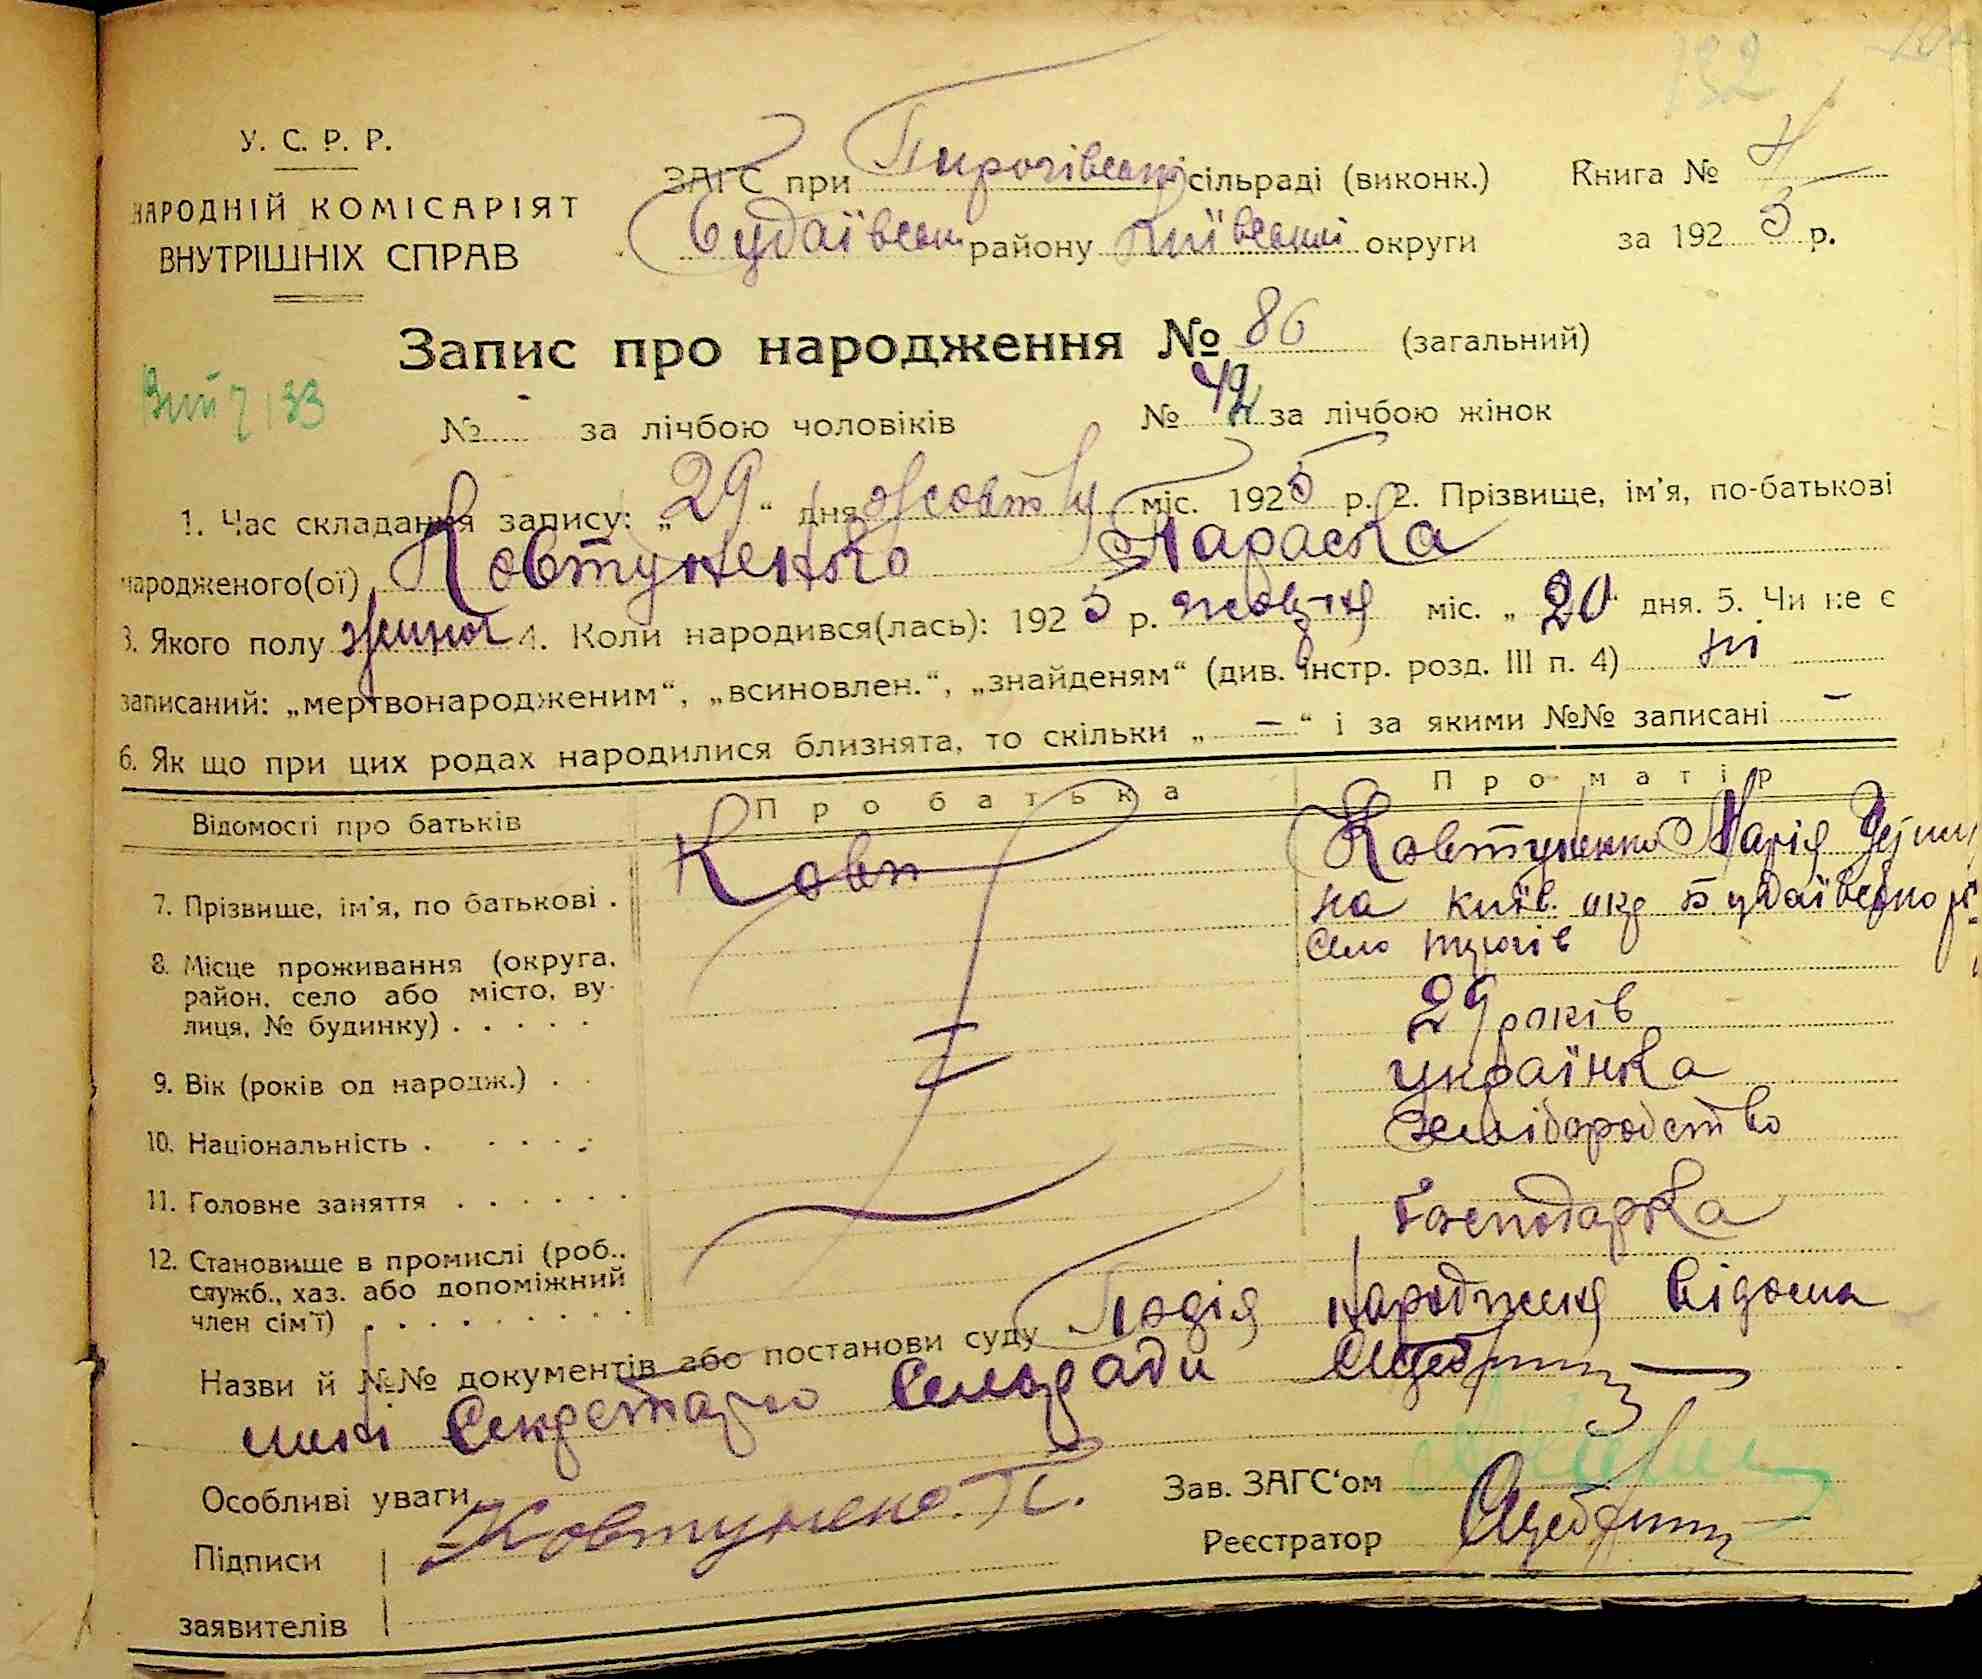 132
У. С. Р. Р.
НАРОДНІЙ КОМІСАРІЯТ
ВНУТРІШНІХ СПРАВ
ЗАГС при Пирогівські сільраді (виконк.)
Будаївськ району Київської округи
Книга №
за 192 5 р.
Запис про народження № 86 (загальний)
№ за лічбою чоловіків № 42 за лічбою жінок
1. Час складання запису: „ 29 “ дня жовтня міс. 1925 р. 2. Прізвище, ім'я, по-батькові
народженого(ої) Ковтуненко Параска
3. Якого полу жіноч 4. Коли народився(лась): 192 5 р. жовтня міс. „ 20 “ дня. 5. Чи не є
записаний: „мертвонародженим“, „всиновлен.“, „знайденям“ (див. інстр. розд. III п. 4) ні
6. Як що при цих родах народилися близнята, то скільки „ — “ і за якими №№ записані —
Відомості про батьків
Про батька
Про матір
7. Прізвище, ім'я, по батькові .
Ковт
Ковтуненко Марія
на Київ. окр Будаївського
село
8. Місце проживання (округа,
район, село або місто, ву-
лиця, № будинку) . . . . .
29 років
9. Вік (років од народж.) . .
українка
10. Національність . . . . .
хліборобство
11. Головне заняття . . . . . .
господарка
12. Становище в промислі (роб.,
служб., хаз. або допоміжний
член сім'ї) . . . . . . . . .
Назви й №№ документів або постанови суду Подія народження відома
мині секретарю сельради
Особливі уваги
Зав. ЗАГС‘ом
Підписи
заявителів
Ковтунено П.
Реєстратор